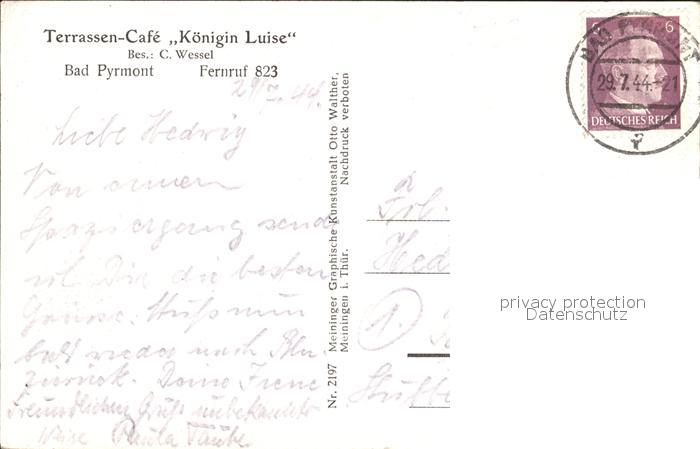 Terrassen-Café „Königin Luise“
Bes.: C. Wessel
Bad Pyrmont Fernruf 823
29/7.44.
Liebe Hedwig
Von einem
Spaziergang sende
ich Dir die besten
Grüsse. Muß nun
bald wieder nach
zurück. Deine Irene
Freundlichen Gruß unbekannter
Weise Paula Taube
Nr. 2197 Meininger Graphische Kunstanstalt Otto Walther,
Meiningen i. Thür. Nachdruck verboten
6
BAD PYRMONT
29.7.44.-21
DEUTSCHES REICH
Frl.
Hed
privacy protection
Datenschutz